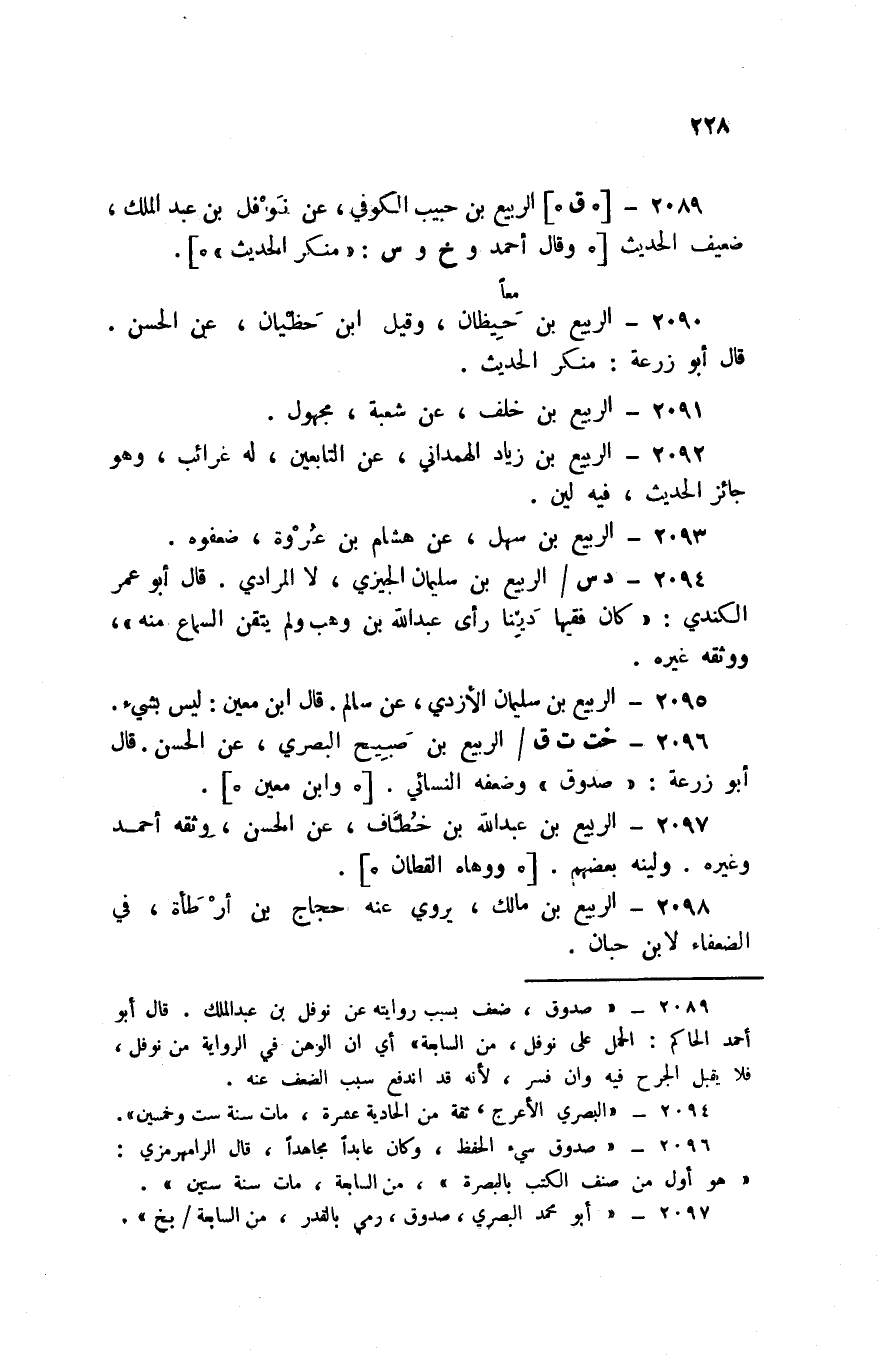 ٢٢٨
٢٠٨٩ – [ه ق ه] الربيع بن حبيب الكوفي ، عن نَوْفل بن عبد الملك ،
ضعيف الحديث [ه وقال أحمد و خ و س : « منكر الحديث » ه] .
معاً
٢٠٩٠ – الربيع بن حَيِظان ، وقيل ابن حَظْيان ، عن الحسن .
قال أبو زرعة : منكر الحديث .
٢٠٩١ – الربيع بن خلف ، عن شعبة ، مجهول .
٢٠٩٢ – الربيع بن زياد الهمداني ، عن التابعين ، له غرائب ، وهو
جائز الحديث ، فيه لين .
٢٠٩٣ – الربيع بن سهل ، عن هشام بن عُرْوة ، ضعفوه .
٢٠٩٤ – د س / الربيع بن سليمان الجيزي ، لا المرادي . قال أبو عمر
الكندي : « كان فقيها دَيِّنا رأى عبدالله بن وهب ولم يتقن السماع منه » ،
ووثقه غيره .
٢٠٩٥ – الربيع بن سليمان الأزدي ، عن سالم . قال ابن معين : ليس بشيء .
٢٠٩٦ – خت ت ق / الربيع بن صَبِيح البصري ، عن الحسن . قال
أبو زرعة : « صدوق » وضعفه النسائي . [ه وابن معين ه] .
٢٠٩٧ – الربيع بن عبدالله بن خُطَّاف ، عن الحسن ، وثقه أحمد
وغيره . ولينه بعضهم . [ه ووهاه القطان ه] .
٢٠٩٨ – الربيع بن مالك ، يروي عنه حجاج بن أرْطَأة ، في
الضعفاء لابن حبان .
٢٠٨٩ – « صدوق ، ضعف بسبب روايته عن نوفل بن عبدالملك . قال أبو
أحمد الحاكم : الحمل على نوفل ، من السابعة» أي ان الوهن في الرواية من نوفل ،
فلا يقبل الجرح فيه وان فسر ، لأنه قد اندفع سبب الضعف عنه .
٢٠٩٤ – «البصري الأعرج ، ثقة من الحادية عشرة ، مات سنة ست وخمسين».
٢٠٩٦ – « صدوق سيء الحفظ ، وكان عابداً مجاهداً ، قال الرامهرمزي :
« هو أول من صنف الكتب بالبصرة » ، من السابعة ، مات سنة ستين » .
٢٠٩٧ – « أبو محمد البصري ، صدوق ، رمي بالقدر ، من السابعة / بخ » .